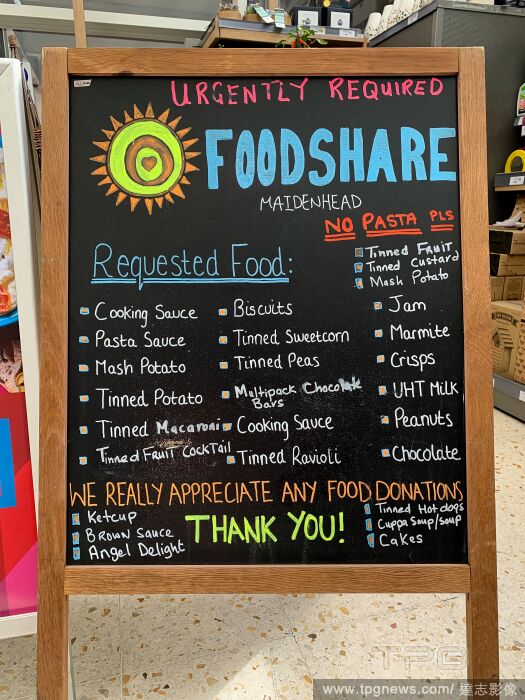 URGENTLY REQUIRED
FOODSHARE
MAIDENHEAD
NO PASTA PLS
Requested Food:
Tinned Fruit
Tinned Custard
Mash Potato
Cooking Sauce
Pasta Sauce
Mash Potato
Tinned Potato
Tinned Macaroni
Tinned Fruit Cocktail
Biscuits
Tinned Sweetcorn
Tinned Peas
Multipack Chocolate
Bars
Cooking Sauce
Tinned Ravioli
Jam
Marmite
Crisps
UHT Milk
Peanuts
Chocolate
WE REALLY APPRECIATE ANY FOOD DONATIONS
Ketcup
Brown Sauce
Angel Delight
THANK YOU!
Tinned Hotdogs
Cuppa Soup/soup
Cakes
TPG
www.tpgnews.com/ 達志影像